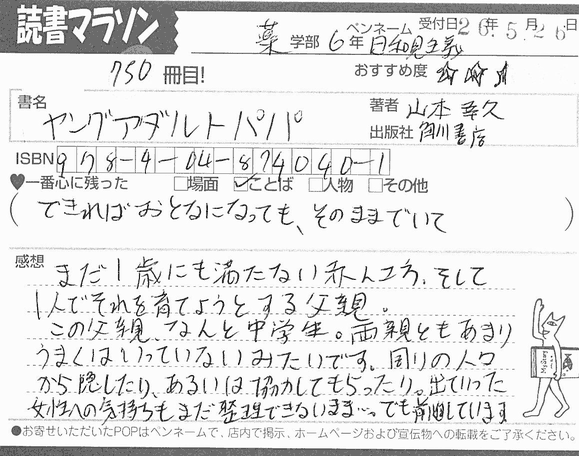 読書マラソン
薬 学部 6年 ペンネーム 日和見主義 受付日 26年.5月26日
750冊目! おすすめ度 ★★★
書名 ヤングアダルトパパ 著者 山本幸久
出版社 角川書店
ISBN 978-4-04-874040-1
♥一番心に残った □場面 ☑ことば □人物 □その他
(できればおとなになっても、そのままでいて)
感想 まだ1歳にも満たない赤ん坊、そして
1人でそれを育てようとする父親。
この父親、なんと中学生。両親ともあまり
うまくはいっていないみたいです。周りの人々
から隠したり、あるいは協力してもらったり。出ていった
女性への気持ちもまだ整理できないまま…。でも前進しています
●お寄せいただいたPOPはペンネームで、店内で掲示、ホームページおよび宣伝物への転載をご了承ください。